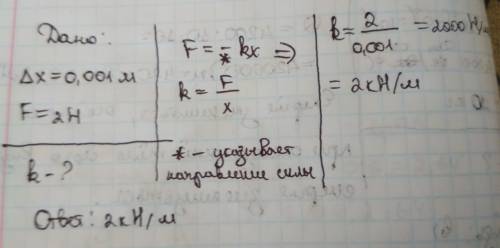 Дано:
Δx = 0,001 м
F = 2Н
k - ?
F = - kx ⇒
*
k = F/x
* - указывает
направление силы
k = 2/0,001 = 2000 Н/м
= 2кН/м
Ответ: 2кН/м